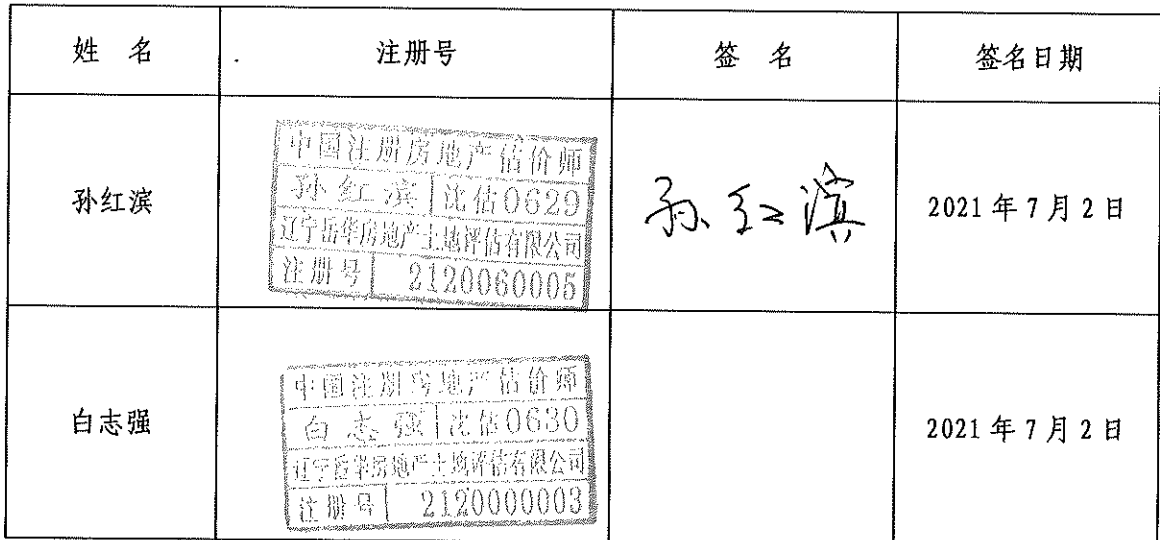 姓 名 注册号 签 名 签名日期
孙红滨
中国注册房地产估价师
孙红滨 沈估0629
辽宁岳华房地产土地评估有限公司
注册号 2120060005
孙红滨
2021年7月2日
白志强
中国注册房地产估价师
白志强 沈估0630
辽宁岳华房地产土地评估有限公司
注册号 2120000003
2021年7月2日